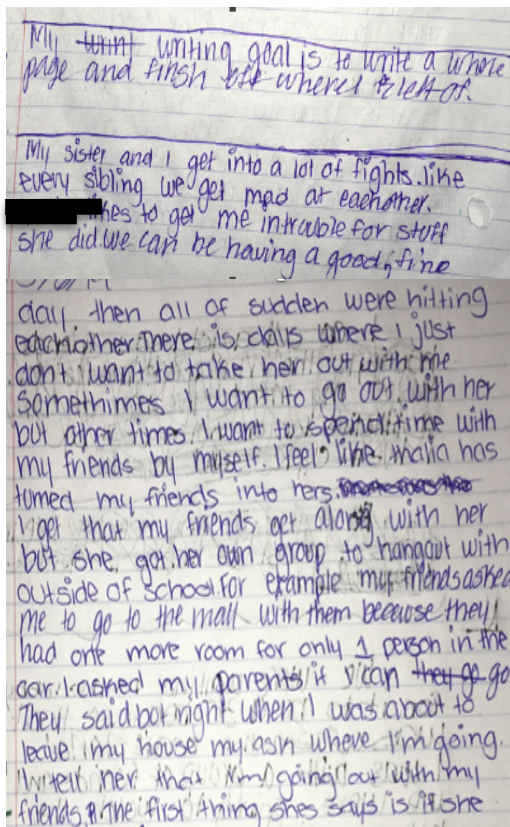 My writing goal is to write a whole
page and finsh off where I left of.
My sister and I get into a lot of fights. like
every sibling we get mad at eachother.
to get me intrubie for stuff
she did. we can be having a good, fine
day then all of sudden were hitting
eachother. There is days where I just
don't want to take her out with me
Somethimes I want to go out with her
but other times I want to spend time with
my friends by myself. I feel like malia has
turned my friends into hers.
I get that my friends get along with her
but she got her own group to hangout with
outside of school. For example my friends asked
me to go to the mall with them because they
had one more room for only 1 person in the
car. I asked my parents if I can they go go
They said right when I was about to
leave my house my where I'm going.
I tell her that I'm going out with my
friends the first thing shes says is if she